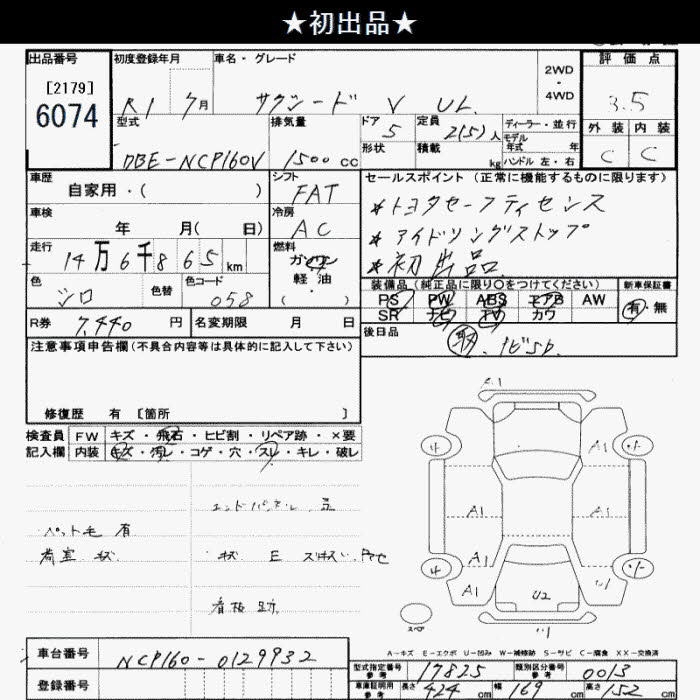 ★初出品★
出品番号
[2179]
6074
初度登録年月
R1 7月
車名・グレード
サクシード V UL
2WD
・
4WD
評価点
3.5
外装 内装
C C
型式
DBE-NCP160V
排気量
1500 cc
ドア
5
形状
定員
2(5)人
積載
kg
ディーラー・並行
モデル
年式 年
ハンドル 左・右
車歴
自家用・( )
シフト
FAT
車検
年 月( 日)
冷房
AC
走行
14万6千865 km
燃料
ガソリン
軽油
・
( )
色
シロ
色替
色コード
058
R券
7,440 円
名変期限 月 日
セールスポイント(正常に機能するものに限ります)
*トヨタセーフティセンス
*アイドリングストップ
*初出品
装備品(純正品に限り○をつけてください)
PS PW ABS エアB AW
SR ナビ TV カワ
新車保証書
有・無
後日品
注意事項申告欄(不具合内容等は具体的に記入して下さい)
修復歴 有 [箇所 ]
検査員 FW キズ・飛石・ヒビ割・リペア跡・×要
記入欄 内装 キズ・汚レ・コゲ・穴・スレ・キレ・破レ
ペット毛 有
荷室 キズ
A1
A1
A1
A1
A1
A1
U2
スペア
A-キズ E-エクボ U-凹み W-補修跡 S-サビ C-腐食 XX-交換済
車台番号 NCP160-0129932
登録番号
型式指定番号
参考
17825
類別区分番号
参考
0013
車庫証明用
参考
長さ 424 cm 幅 169 cm 高さ 152 cm